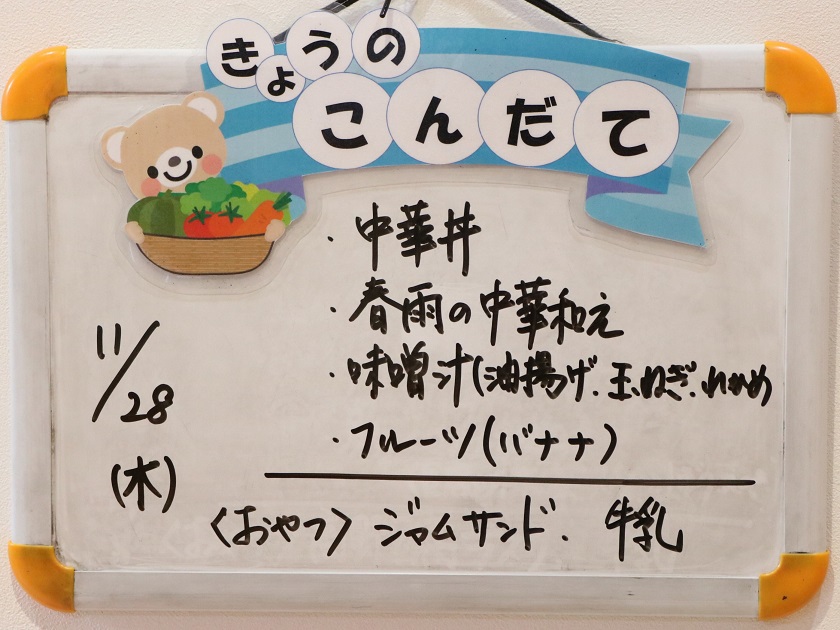 きょうの
こんだて
11/28
(木)
・中華丼
・春雨の中華和え
・味噌汁(油揚げ.玉ねぎ.わかめ
・フルーツ(バナナ)
〈おやつ〉 ジャムサンド. 牛乳